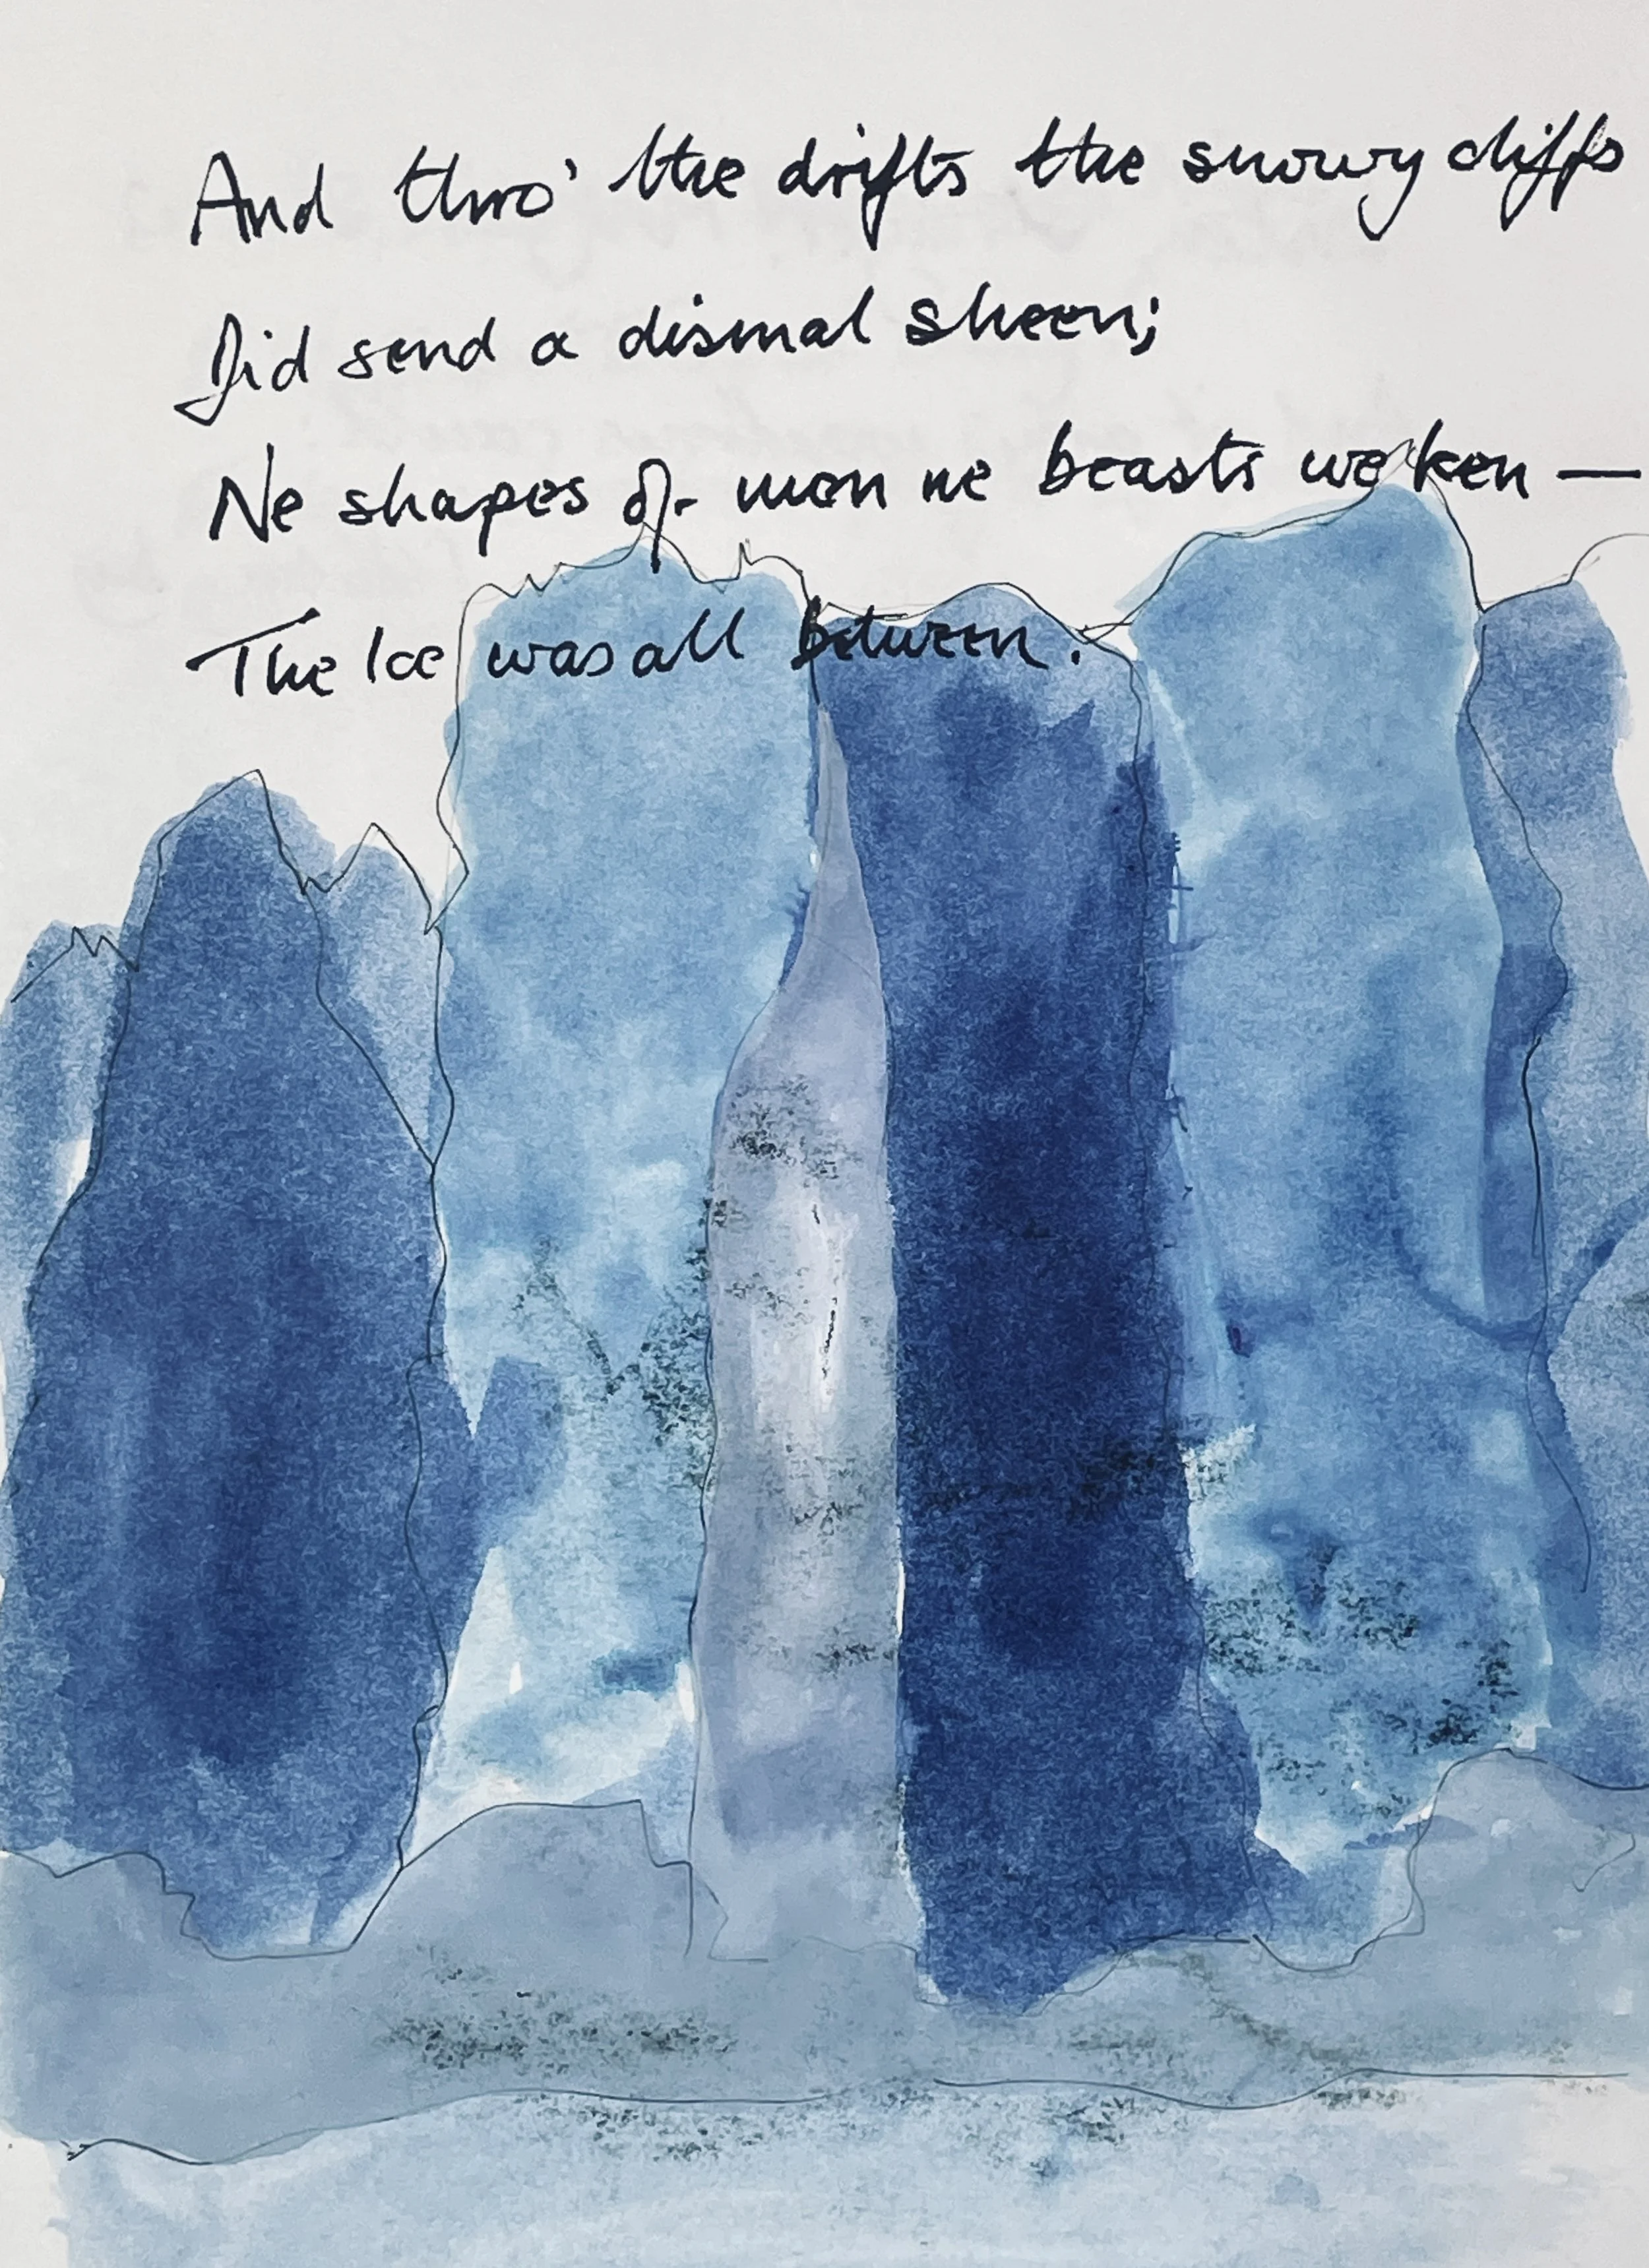 And thro' the drifts the snowy cliffs
Did send a dismal sheen;
Ne shapes of men ne beasts we ken —
The Ice was all between.